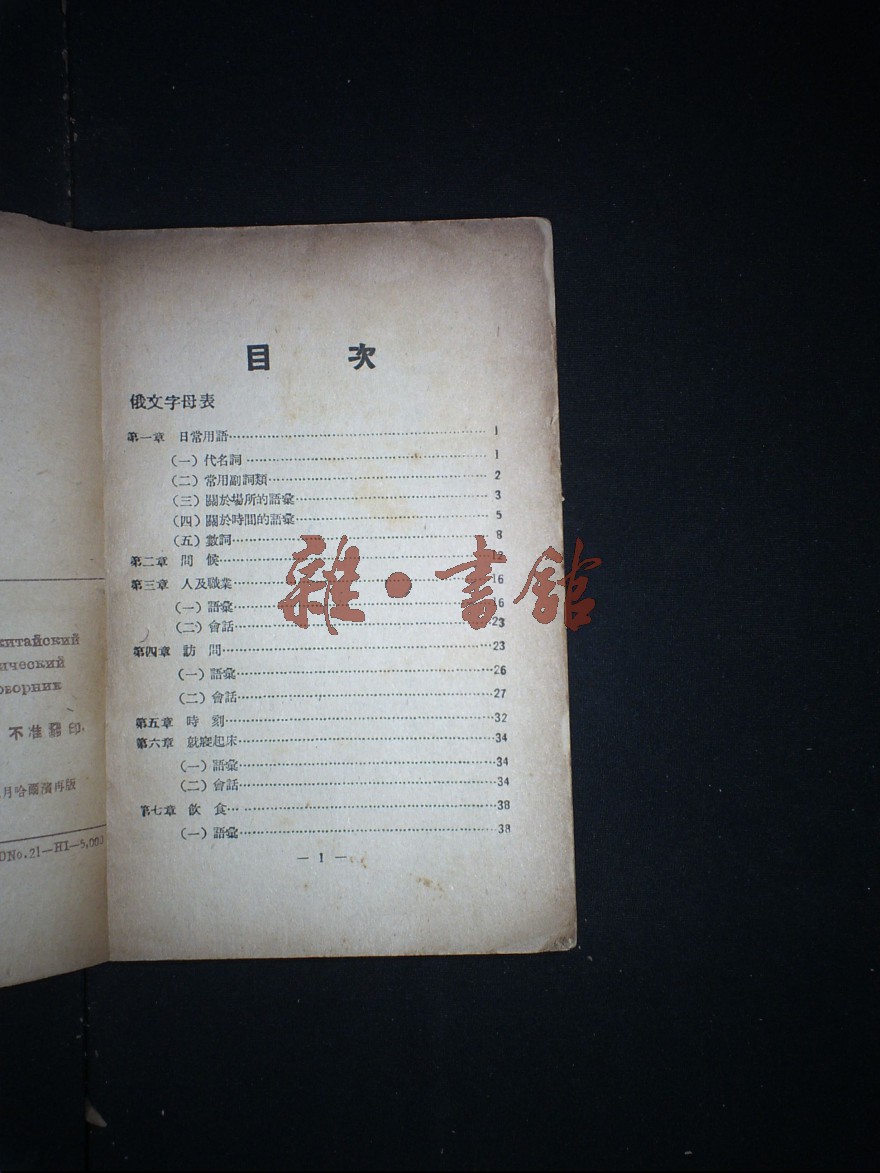 китайский
ический
оворник
不准翻印
月哈爾濱再版
No.21—HI—5,000
目 次
俄文字母表
第一章 日常用語…………1
(一)代名詞…………1
(二)常用副詞類…………2
(三)關於場所的語彙…………3
(四)關於時間的語彙…………5
(五)數詞…………8
第二章 問 候…………12
第三章 人及職業…………16
(一)語彙…………16
(二)會話…………23
第四章 訪 問…………23
(一)語彙…………26
(二)會話…………27
第五章 時 刻…………32
第六章 就寢起床…………34
(一)語彙…………34
(二)會話…………34
第七章 飲 食…………38
(一)語彙…………38
— 1 —
雜·書館